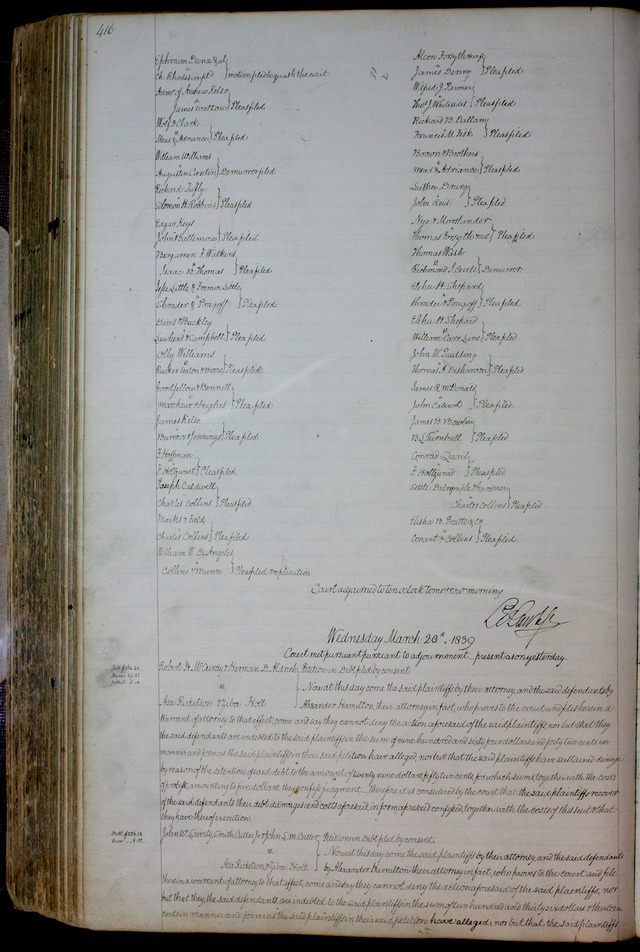 416
Ephraim Dana & al
Ch. Rhodes impl'd } motion pled to quash the writ
Adm'r of Andrew Kelso
James Watton } Pleas filed
Wm J. Clark
Mead & Adriance } Plea filed
William Williams
Augustin Conlin } Demurrer filed
Richard Tuffly
Solomon H. Robbins } Pleas filed
Edgar Keys
John Baltimore } Plea filed
Benjamin F. Watkins
Isaac B. Thomas } Plea filed
Jesse Little & Freemen Little
Shrader & Pragoff } Plea filed
Davis & Buckley
Campbell } Plea filed
Olly Williams
Rucker Sexton & more } Pleas filed
Goodfellow & Bennett
Matthews & Hughes } Plea filed
James Kelso
Burrows & Jennings } Plea filed
F. Hoffman
F. Holzwart } Pleas filed
Joseph Caldwell
Charles Collins } Pleas filed
Marks & Field
Charles Collins } Plea filed
William W. DeAngeles
Collins & Munn } Plea filed & replication
Alcon Forsyth & wife
James Denny } Plea filed
Thos J. Whitesides } Pleas filed
Richard B. Dallam
Francis M. Fisk } Plea filed
Brown & Brothers
Mead & Adriance } Pleas filed
Luther
John Reid } Plea filed
Nye & Mortlander
Thomas Forsyth & al } Plea filed
Thomas Wash
Richmond J. } Demurrer
Elihu H. Shepard
Shrader & Pragoff } Pleas filed
Elihu H. Shepard
William Carr Lane } Plea filed
John W. Paulding
Thomas } Plea filed
James R. McDonald
John Calvert } Plea filed
James B. Bowlin
B. L. Turnbull } Plea filed
Conrad Quail
F. Holzward } Pleas filed
Settles Dalrymple & Gardner
Charles Collins } Pleas filed
Elisha B. Pratte & Co
Conant & Collins } Plea filed
Court adjourned to ten o'clock tomorrow morning
Wednesday March 20th 1839
Court met pursuant pursuant to adjournment present as on yesterday.
Robert H. McCurdy & Herman D. Aldrich } Petition in Debt filed by consent
vs } Now at this day come the said plaintiffs by their attorney, and the said defendants by
Asa Ricketson & Ziba Nott } Alexander Hamilton, their attorney in fact, who proves to the court and files herein a
Warrant of attorney to that effect, come and say they cannot deny the action aforesaid of the said plaintiffs, nor but that they
the said defendants are indebted to the said plaintiffs in the sum of nine hundred and sixty four dollars and forty two cents in
manner and form as the said plaintiffs in their said petition have alleged, nor but that the said plaintiffs have sustained damage
by reason of the detention of said debt to the amount of twenty nine dollars fifty two cents, for which sums, together with the costs
of protest, amounting to five dollars they confess judgment. Therefore it is considered by the court that the plaintiffs recover
of the said defendants their debt damages and costs aforesaid, in form aforesaid confessed, together with the costs of this suit & that
they have thereof execution.
John W. Laverty, Smith Cutter Jr & John L. M. Cutter } Petition in Debt filed by consent.
vs } Now at this day come the said plaintiffs by their attorney, and the said defendants
Asa Ricketson & Ziba Nott } by Alexander Hamilton their attorney in fact, who proves to the court and file
therein a warrant of attorney to that effect, come and say they cannot deny the action aforesaid of the said plaintiffs, nor
but that they, the said defendants are indebted to the said plaintiffs in the sum of two hundred and thirty six dollars & thirteen
cents in manner and form as the said plaintiffs in their said petition have alleged; nor but that the said plaintiffs